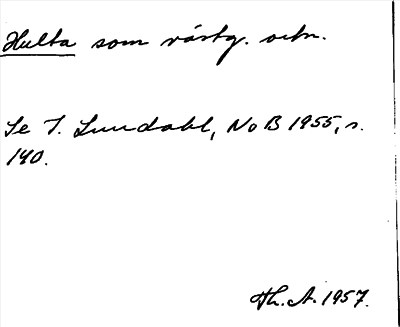 Hulta som västg. ortn.
Se I. Lundahl, NoB 1955, s.
140.
Th. A. 1957.